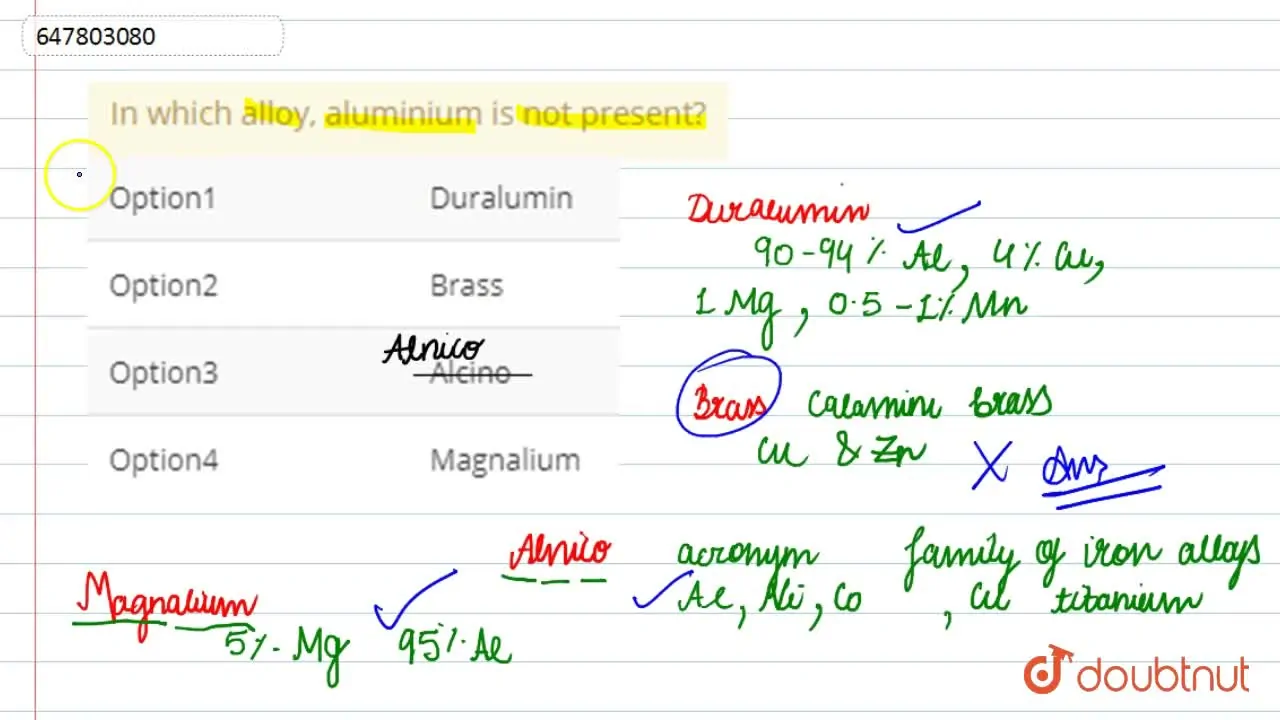 647803080
In which alloy, aluminium is not present?
Option1 Duralumin
Option2 Brass
Alnico
Option3 Alcino
Option4 Magnalium
Duralumin
90-94% Al, 4% Cu,
1 Mg, 0.5-1% Mn
Brass Calamine brass
Cu & Zn X Ans
Alnico acronym family of iron alloys
Al, Ni, Co, Cu titanium
Magnalium
5% Mg 95% Al
doubtnut